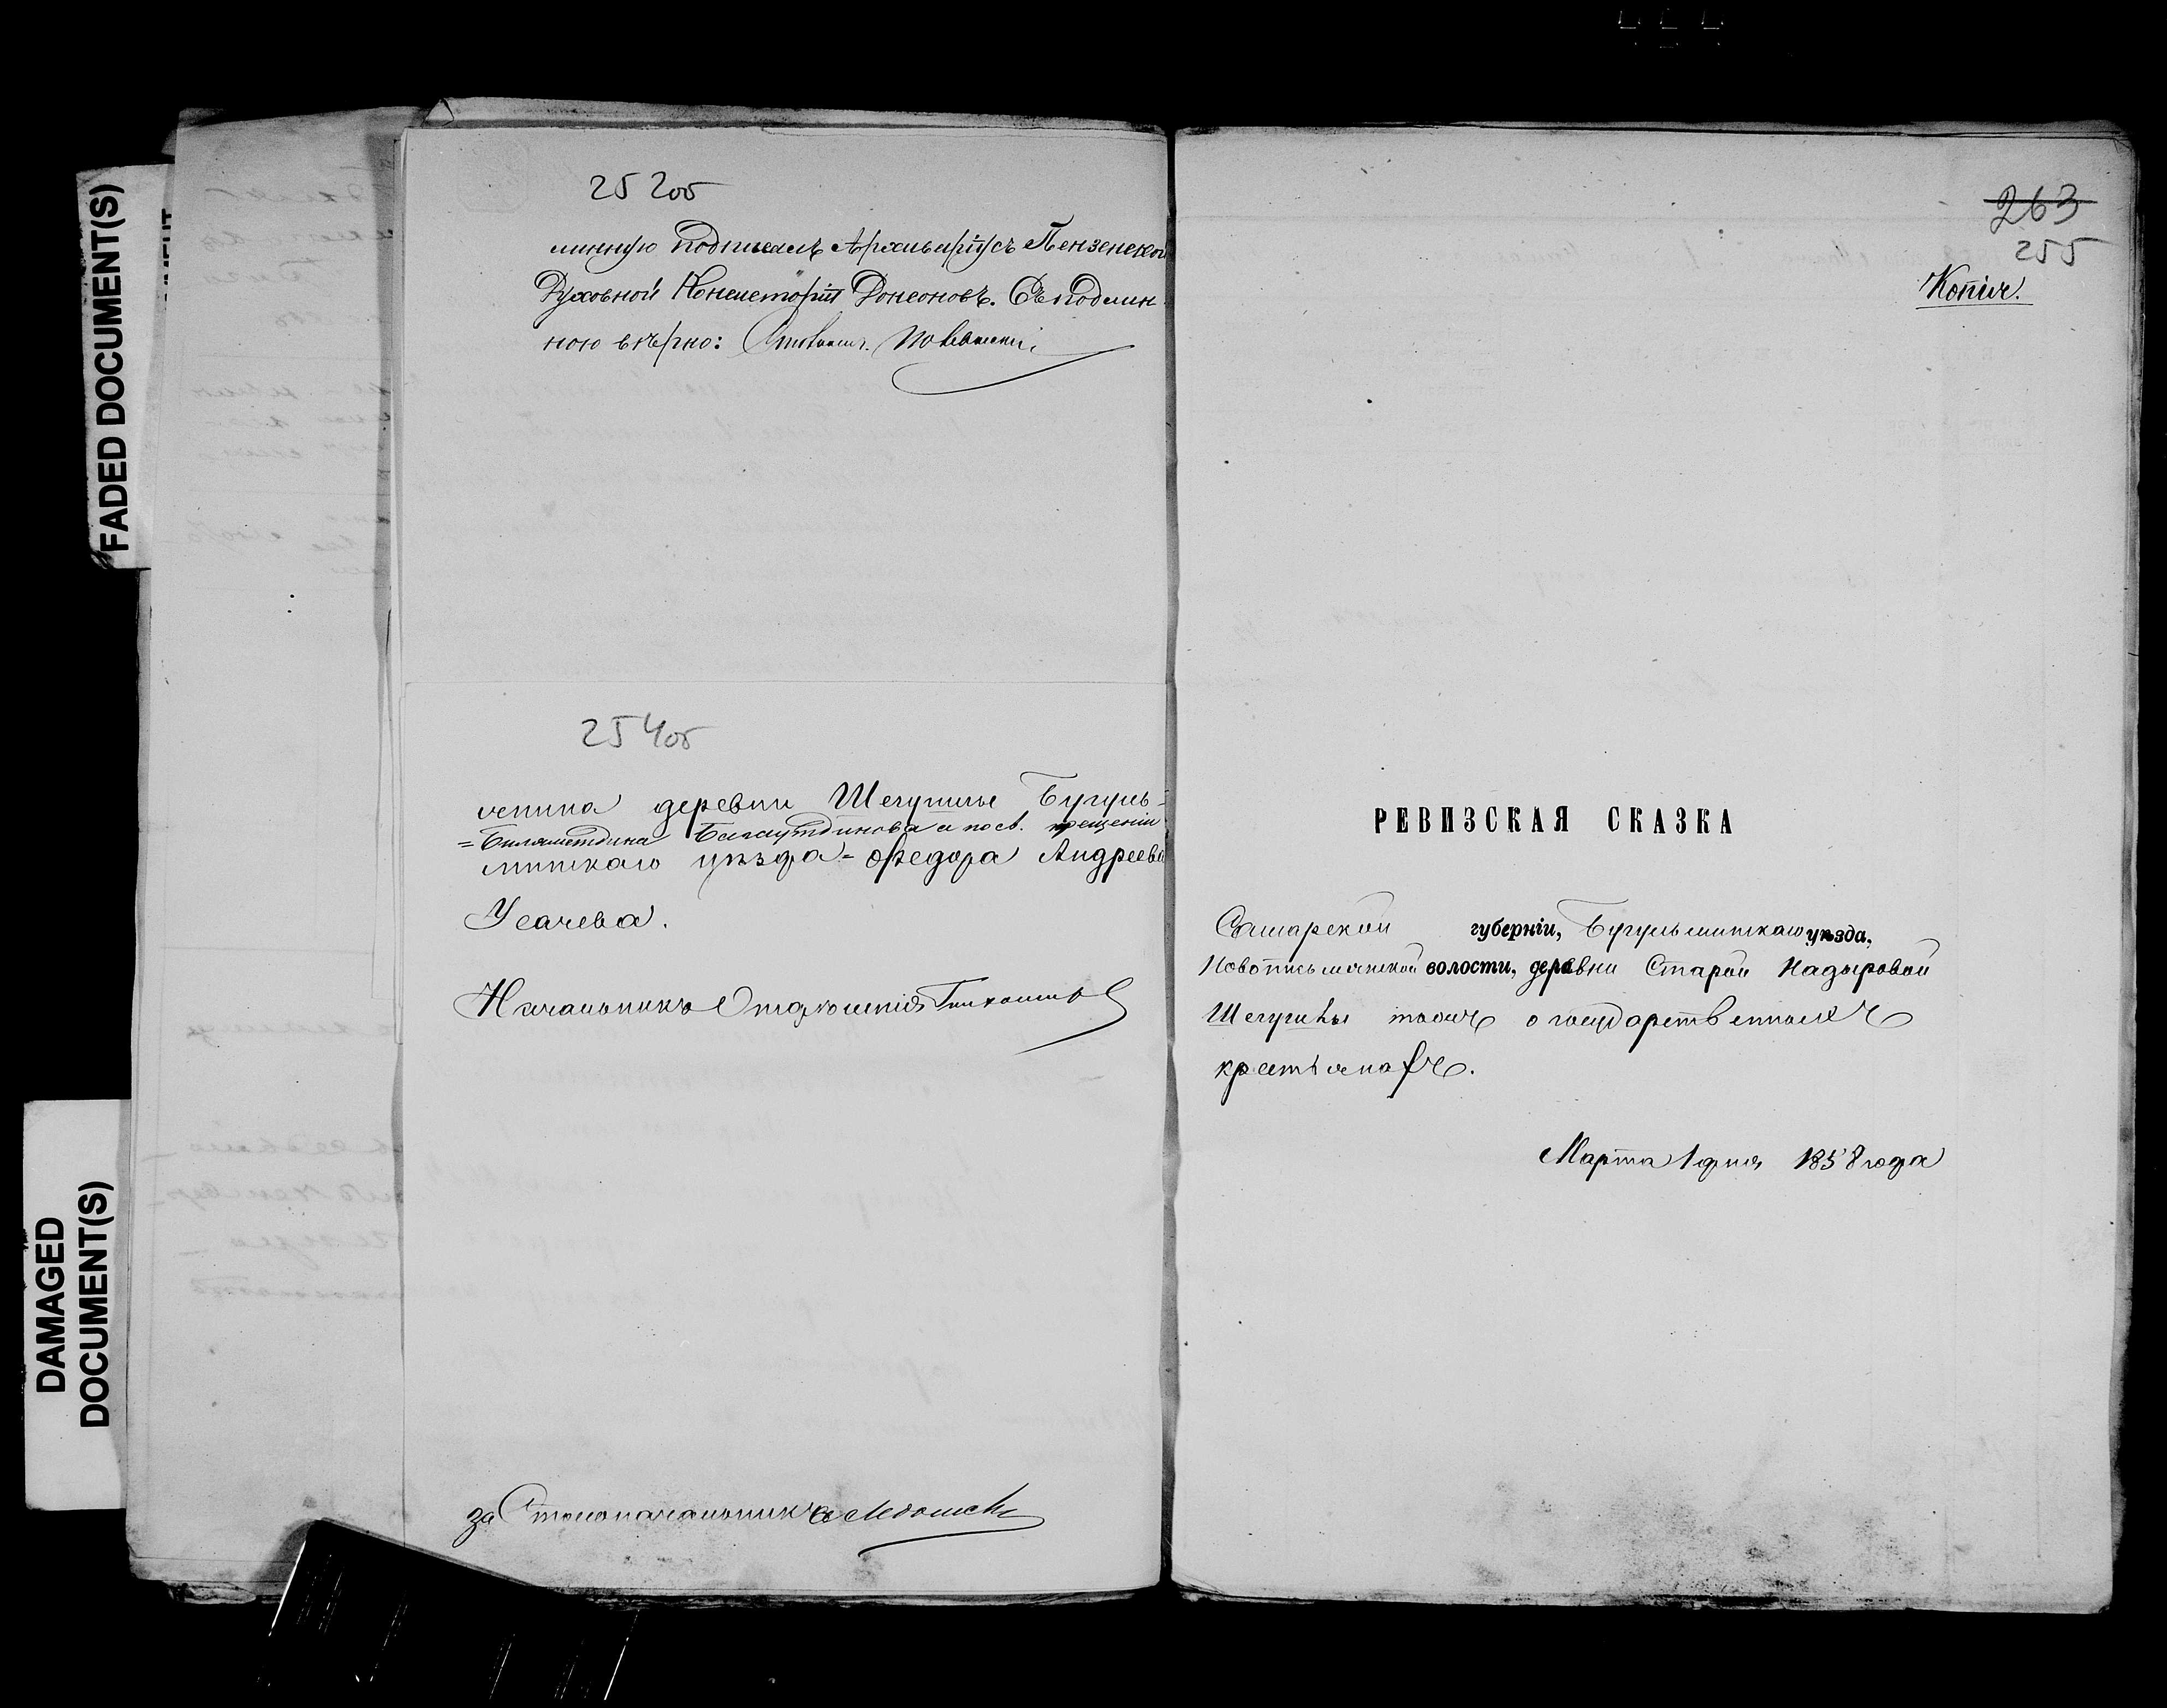 FADED DOCUMENT(S)
DAMAGED
DOCUMENT(S)
252об
линную подписалъ Архиваріусъ Пензенской
Духовной Консисторіи Донсоновъ. Съ подлин-
ною вѣрно:
254об
сенина деревни Шегуцилье Бугуль-
=Билялетдина Багаутдинова а по св. крещеніи
минскаго уѣзда= Ѳедора Андреева
Усачева.
Начальникъ Отдѣленія
за Столоначальника
263
255
Копія.
РЕВИЗСКАЯ СКАЗКА
Самарской губерніи, Бугульминскаго уѣзда,
Новописьмянской волости, деревни Старой Надыровой
Шегурчы тожъ о государственныхъ
крестьянахъ.
Марта 1 дня 1858 года